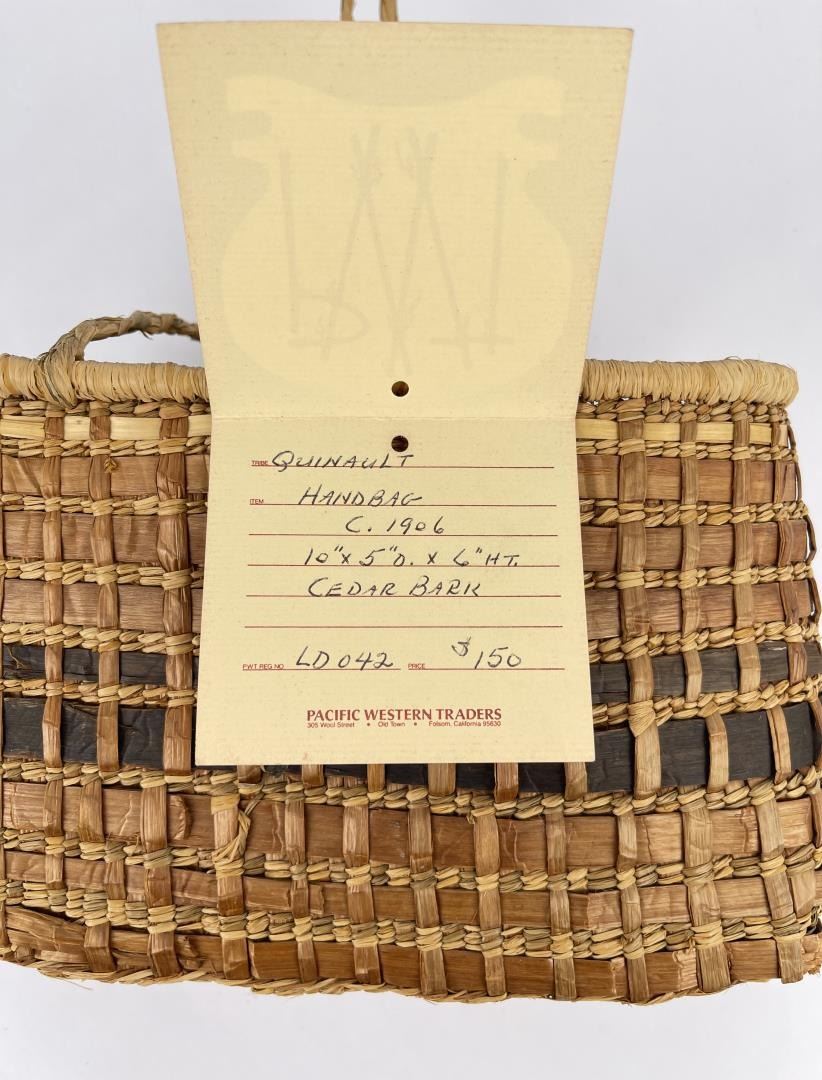 TRIBE QUINAULT
ITEM HANDBAG
C. 1906
10" X 5" D. X 6" HT.
CEDAR BARK
PWT REG NO LD042 PRICE $150
PACIFIC WESTERN TRADERS
305 Wool Street • Old Town • Folsom, California 95630